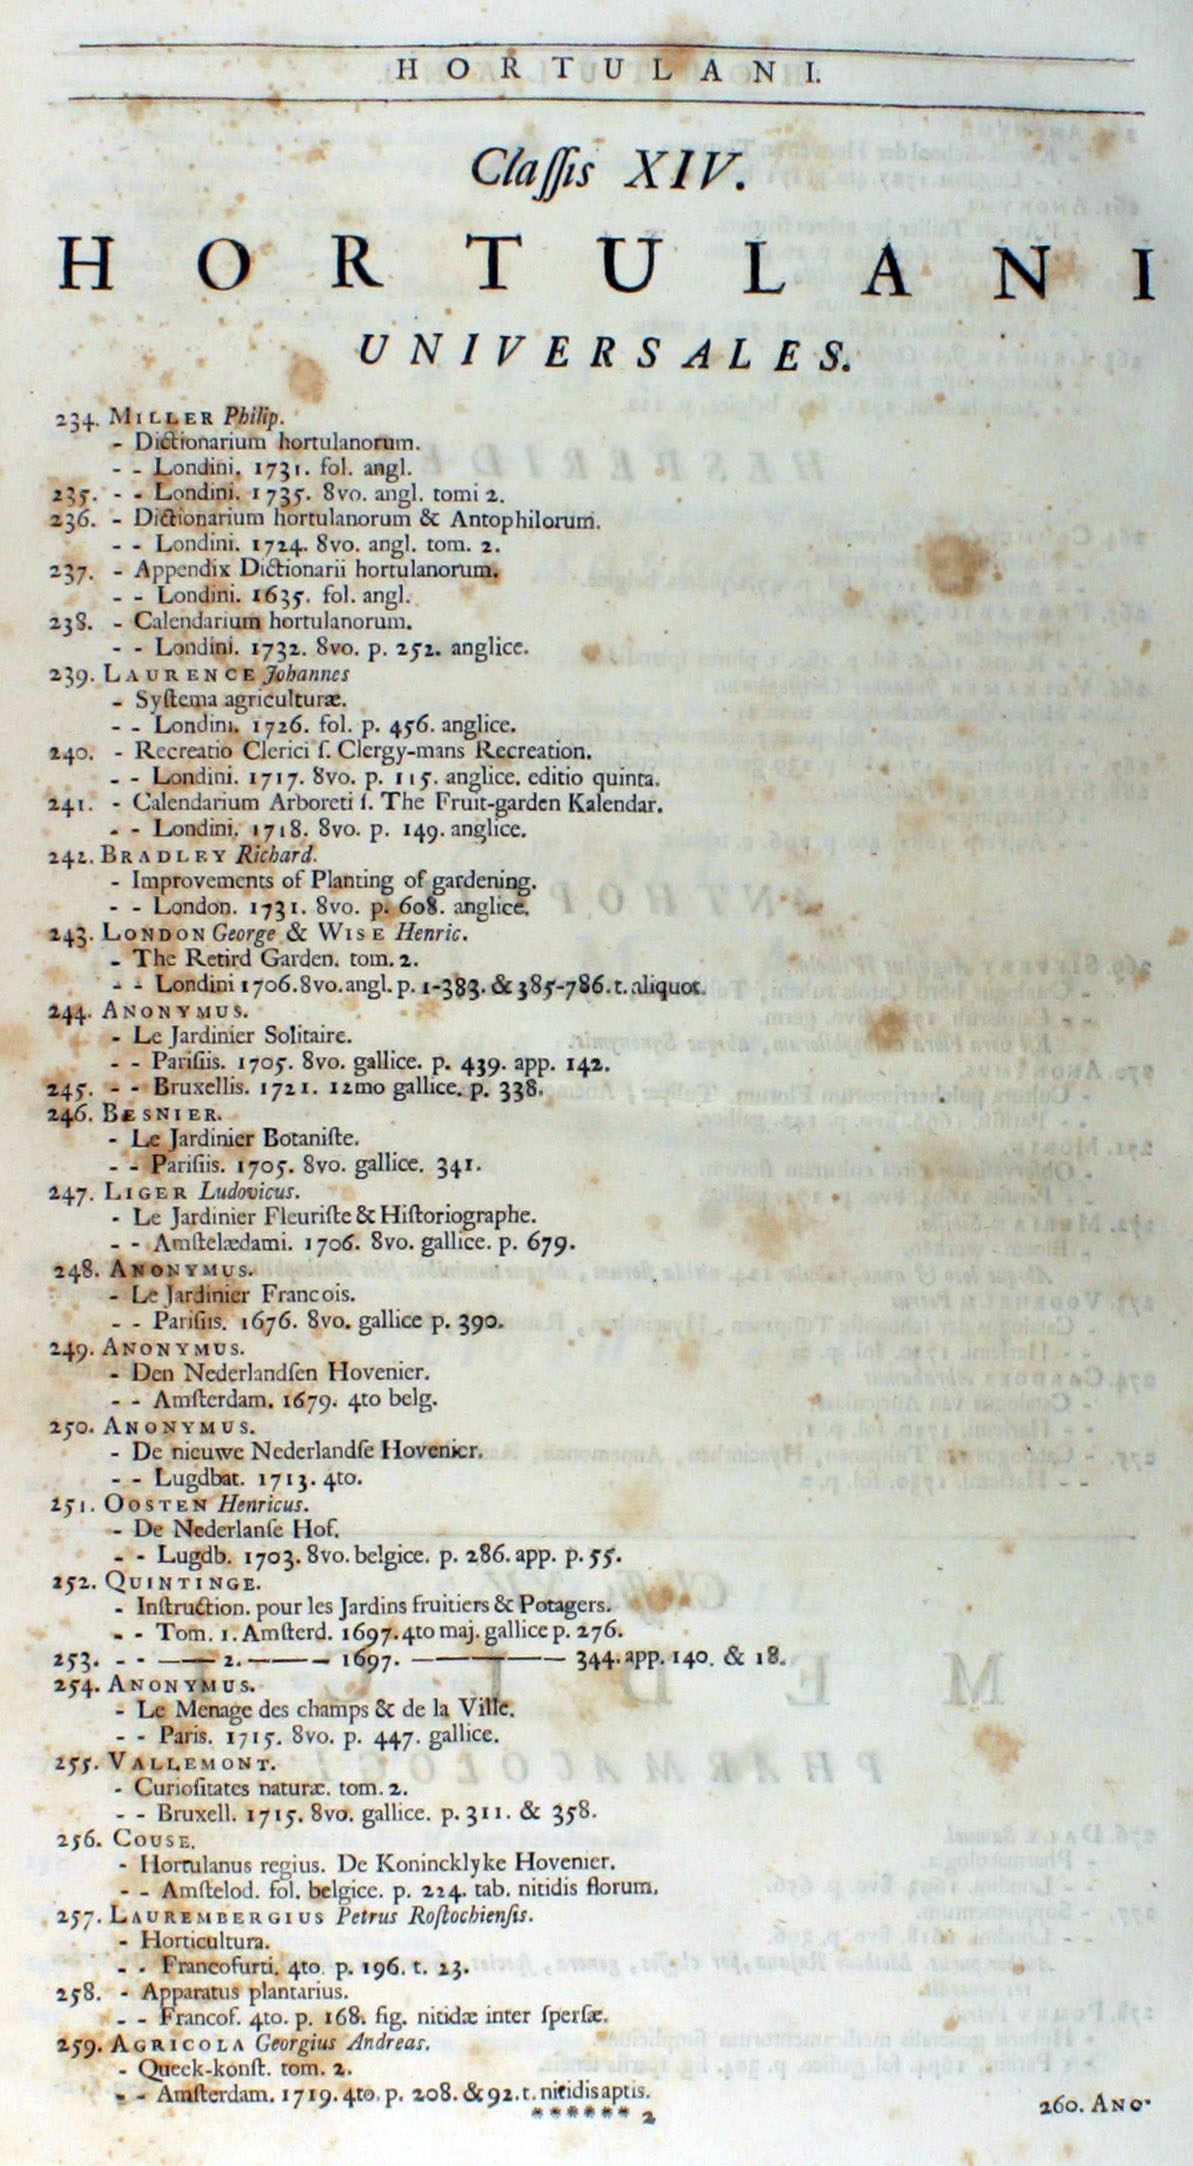 HORTULANI.
Claſſis XIV.
HORTULANI
UNIVERSALES.
234. MILLER Philip.
- Dictionarium hortulanorum.
- - Londini. 1731. fol. angl.
235. - - Londini. 1735. 8vo. angl. tomi 2.
236. - Dictionarium hortulanorum & Antophilorum.
- - Londini. 1724. 8vo. angl. tom. 2.
237. - Appendix Dictionarii hortulanorum.
- - Londini. 1635. fol. angl.
238. - Calendarium hortulanorum.
- - Londini. 1732. 8vo. p. 252. anglice.
239. LAURENCE Johannes
- Syſtema agriculturæ.
- - Londini. 1726. fol. p. 456. anglice.
240. - Recreatio Clerici ſ. Clergy-mans Recreation.
- - Londini. 1717. 8vo. p. 115. anglice. editio quinta.
241. - Calendarium Arboreti ſ. The Fruit-garden Kalendar.
- - Londini. 1718. 8vo. p. 149. anglice.
242. BRADLEY Richard.
- Improvements of Planting of gardening.
- - London. 1731. 8vo. p. 608. anglice.
243. LONDON George & WISE Henric.
- The Retird Garden. tom. 2.
- - Londini 1706. 8vo. angl. p. 1-383. & 385-786. t. aliquot.
244. ANONYMUS.
- Le Jardinier Solitaire.
- - Pariſiis. 1705. 8vo. gallice. p. 439. app. 142.
245. - - Bruxellis. 1721. 12mo gallice. p. 338.
246. BESNIER.
- Le Jardinier Botaniſte.
- - Pariſiis. 1705. 8vo. gallice. 341.
247. LIGER Ludovicus.
- Le Jardinier Fleuriſte & Hiſtoriographe.
- - Amſtelædami. 1706. 8vo. gallice. p. 679.
248. ANONYMUS.
- Le Jardinier Francois.
- - Pariſiis. 1676. 8vo. gallice p. 390.
249. ANONYMUS.
- Den Nederlandſen Hovenier.
- - Amſterdam. 1679. 4to belg.
250. ANONYMUS.
- De nieuwe Nederlandſe Hovenier.
- - Lugdbat. 1713. 4to.
251. OOSTEN Henricus.
- De Nederlanſe Hof.
- - Lugdb. 1703. 8vo. belgice. p. 286. app. p. 55.
252. QUINTINGE.
- Inſtruction. pour les Jardins fruitiers & Potagers.
- - Tom. 1. Amſterd. 1697. 4to maj. gallice p. 276.
253. - - —— 2. ——— 1697. ————— 344. app. 140. & 18.
254. ANONYMUS.
- Le Menage des champs & de la Ville.
- - Paris. 1715. 8vo. p. 447. gallice.
255. VALLEMONT.
- Curioſitates naturæ. tom. 2.
- - Bruxell. 1715. 8vo. gallice. p. 311. & 358.
256. COUSE.
- Hortulanus regius. De Konincklyke Hovenier.
- - Amſtelod. fol. belgice. p. 224. tab. nitidis florum.
257. LAUREMBERGIUS Petrus Roſtochienſis.
- Horticultura.
- - Francofurti. 4to. p. 196. t. 23.
258. - Apparatus plantarius.
- - Francof. 4to. p. 168. fig. nitidæ inter ſperſæ.
259. AGRICOLA Georgius Andreas.
- Queek-konſt. tom. 2.
- - Amſterdam. 1719. 4to. p. 208. & 92. t. nitidis aptis.
****** 2
260. ANO-